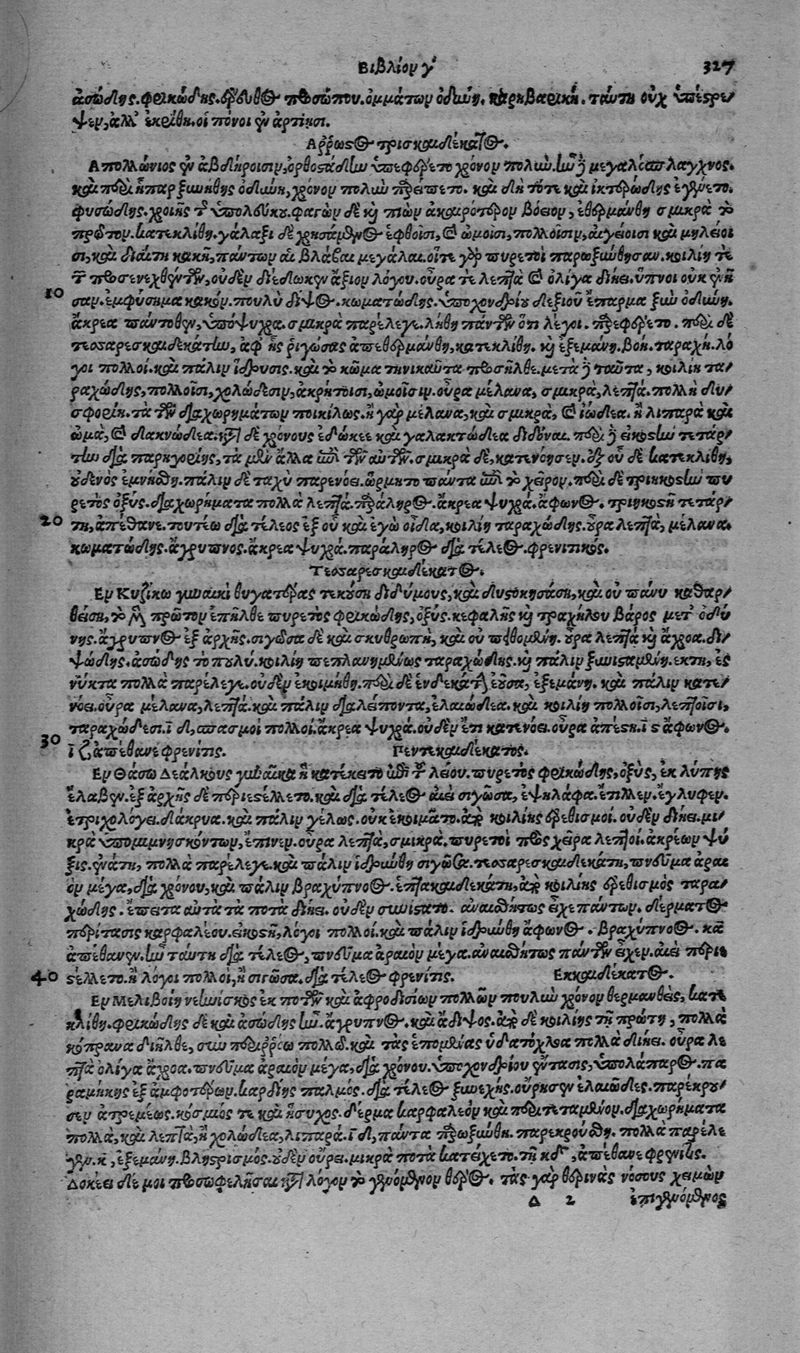 Βιβλίον γʹ 327
ἀσώδης. φρικώδης. ἐρυθος προσώπου. ὀμμάτων ὀδύνη. καρηβαρική. ταύτῃ οὐχ ὑπέστρε/
ψεν, ἀλλ' ἐκρίθη. οἱ πόνοι ἐν ἄρτῃσι.
Αῤῥωστος τρισκαιδέκατος.
Απολλώνιος ἐν ἀβδήροισιν, ὀρθοστάδην ὑπεφέρετο χρόνον πολύν. ἦν δὲ μεγαλόσπλαγχνος.
καὶ περὶ ἧπαρ ξυνήθης ὀδύνη, χρόνον πολὺν παρείπετο. καὶ δὴ τότε καὶ ἰκτερώδης ἐγένετο.
φυσώδης. χροιῆς τῆς ὑπολεύκου. φαγὼν δὲ καὶ πιὼν ἀκαιρότερον βόειον, ἐθερμάνθη σμικρὰ τὸ
πρῶτον. κατεκλίθη. γάλαξι δὲ χρησάμενος ἑφθοῖσι, καὶ ὠμοῖσι, πολλοῖσιν, αἰγείοισι καὶ μηλείοι
σι, καὶ διαίτῃ κακῇ, πάντων αἱ βλάβαι μεγάλαι. οἵτε γὰρ πυρετοὶ παρωξύνθησαν. κοιλίη τε
τῶν προσενεχθέντων, οὐδὲν διέδωκεν ἄξιον λόγου. οὖρα τε λεπτὰ καὶ ὀλίγα διῄει. ὕπνοι οὐκ ἐνῆ
10 σαν. ἐμφύσημα κακόν. πουλὺ δίψος. κωματώδης. ὑποχονδρίου δεξιοῦ ἔπαρμα ξὺν ὀδύνῃ.
ἄκρεα πάντοθεν, ὑπόψυχρα. σμικρὰ παρέλεγε. λήθη πάντων ὅτι λέγοι. παρεφέρετο. περὶ δὲ
τεσσαρεσκαιδεκάτην, ἀφ' ἧς ῥιγώσας ἀπεθερμάνθη, κατεκλίθη. καὶ ἐξεμάνη. βοή. ταραχή. λό
γοι πολλοί. καὶ πάλιν ἵδρυσις. καὶ τὸ κῶμα τηνικαῦτα προσῆλθε. μετὰ δὲ ταῦτα, κοιλίη τα/
ραχώδης, πολλοῖσι, χολώδεσιν, ἀκρήτοισι, ὠμοῖσιν. οὖρα μέλανα, σμικρά, λεπτά. πολλὴ δυ/
σφορίη. τὰ τῶν διαχωρημάτων ποικίλως. ἢ γὰρ μέλανα, καὶ σμικρά, καὶ ἰώδεα. ἢ λιπαρὰ καὶ
ὠμά, καὶ δακνώδεα. κατὰ δὲ χρόνους ἐδόκεε καὶ γαλακτώδεα διδόναι. περὶ δὲ εἰκοστὴν τετάρ/
την διὰ παρηγορίης, τὰ μὲν ἄλλα ἐπὶ τῶν αὐτῶν. σμικρὰ δὲ, κατενόησεν. ἐξ οὗ δὲ κατεκλίθη,
οὐδενὸς ἐμνήσθη. πάλιν δὲ ταχὺ παρενόει. ὥρμητο πάντα ἐπὶ τὸ χεῖρον. περὶ δὲ τριηκοστὴν πυ
ρετὸς ὀξύς. διαχωρήματα πολλὰ λεπτά. παράληρος. ἄκρεα ψυχρά. ἄφωνος. τριηκοστῇ τετάρ/
20 τῃ, ἀπέθανε. τουτέω διὰ τέλεος ἐξ οὗ καὶ ἐγὼ οἶδα, κοιλίη ταραχώδης. οὖρα λεπτά, μέλανα.
κωματώδης. ἄγρυπνος. ἄκρεα ψυχρά. παράληρος διὰ τέλεος. φρενιτικός.
Τεσσαρεσκαιδέκατος.
Εν Κυζίκω γυναικὶ θυγατέρας τεκούσῃ διδύμους, καὶ δυστοκησάσῃ, καὶ οὐ πάνυ καθαρ/
θείσῃ, τὸ μὲν πρῶτον ἐπῆλθε πυρετὸς φρικώδης, ὀξύς. κεφαλῆς καὶ τραχήλου βάρος μετ' ὀδύ
νης. ἄγρυπνος ἐξ ἀρχῆς. σιγῶσα δὲ καὶ σκυθρωπή, καὶ οὐ πειθομένη. οὖρα λεπτὰ καὶ ἄχροα. δι/
ψώδης. ἀσώδης τὸ πολύ. κοιλίη πεπλανημένως ταραχώδης. καὶ πάλιν ξυνισταμένη. ἕκτῃ, ἐς
νύκτα πολλὰ παρέλεγε. οὐδὲν ἐκοιμήθη. περὶ δὲ ἑνδεκάτην ἐοῦσα, ἐξεμάνη. καὶ πάλιν κατε/
νόει. οὖρα μέλανα, λεπτά. καὶ πάλιν διαλείποντα, ἐλαιώδεα. καὶ κοιλίη πολλοῖσι, λεπτοῖσι,
ταραχώδεσι. ιδ, σπασμοὶ πολλοί. ἄκρεα ψυχρά. οὐδὲν ἔτι κατενόει. οὖρα ἀπέστη. ις ἄφωνος.
30 ιζ ἀπέθανε φρενῖτις. Πεντεκαιδέκατος.
Εν Θάσω Δεάλκους γυναῖκα ἣ κατέκειτο ἐπὶ τοῦ λείου. πυρετὸς φρικώδης, ὀξύς, ἐκ λύπης
ἔλαβεν. ἐξ ἀρχῆς δὲ περιεστέλλετο. καὶ διὰ τέλεος αἰεὶ σιγῶσα, ἐψηλάφα. ἔτιλλεν. ἔγλυφεν.
ἐτριχολόγει. δάκρυα. καὶ πάλιν γέλως. οὐκ ἐκοιμᾶτο. ἀπὸ κοιλίης ἐρεθισμοί. οὐδὲν διῄει. μι/
κρὰ ὑπομιμνησκόντων, ἔπινεν. οὖρα λεπτά, σμικρά. πυρετοὶ πρὸς χεῖρα λεπτοί. ἀκρέων ψύ
ξις. ἐνάτῃ, πολλὰ παρέλεγε. καὶ πάλιν ἱδρύνθη σιγῶσα. τεσσαρεσκαιδεκάτῃ, πνεῦμα ἀραι
ὸν μέγα, διὰ χρόνου, καὶ πάλιν βραχύπνοος. ἑπτακαιδεκάτῃ, ἀπὸ κοιλίης ἐρεθισμὸς ταρα/
χώδης. ἔπειτα αὐτὰ τὰ ποτὰ διῄει. οὐδὲν συνίστατο. ἀναισθήτως εἶχε πάντων. δέρματος
περίτασις καρφαλέου. εἰκοστῇ, λόγοι πολλοί. καὶ πάλιν ἱδρύνθη ἄφωνος. βραχύπνοος. κα
ἀπέθανεν. ἦν ταύτῃ διὰ τέλεος, πνεῦμα ἀραιὸν μέγα. ἀναισθήτως πάντων εἶχεν. αἰεὶ περιε/
40 στέλλετο. ἢ λόγοι πολλοί, ἢ σιγῶσα. διὰ τέλεος φρενῖτις. Εκκαιδέκατος.
Εν Μελιβοίη νεηνίσκος ἐκ ποτῶν καὶ ἀφροδισίων πολλῶν πουλὺν χρόνον θερμανθείς, κατε
κλίθη. φρικώδης δὲ καὶ ἀσώδης ἦν. ἄγρυπνος. καὶ ἄδιψος. ἀπὸ δὲ κοιλίης τῇ πρώτῃ, πολλὰ
κόπρανα διῆλθε, σὺν περιῤῥόω πολλῷ. καὶ τὰς ἑπομένας ὑδατόχλοα πολλὰ διῄει. οὖρα λε
πτὰ ὀλίγα ἄχροα. πνεῦμα ἀραιὸν μέγα, διὰ χρόνου. ὑποχονδρίου ἔντασις, ὑπολάπαρος. πα
ραμήκης ἐξ ἀμφοτέρων. καρδίης παλμός. διὰ τέλεος ξυνεχής. οὔρησεν ἐλαιῶδες. παρέκρου/
σεν ἀτρεμέως. κόσμιός τε καὶ ἥσυχος. δέρμα καρφαλέον καὶ περιτεταμένον. διαχωρήματα
πολλά, καὶ λεπτά, ἢ χολώδεα, λιπαρά. ιδ, πάντα παρωξύνθη. παρεκρούσθη. πολλὰ παρέλε
γεν. κ, ἐξεμάνη. βληστρισμός. οὐδὲν οὔρει. μικρὰ ποτὰ κατείχετο. τῇ κδ, ἀπέθανε φρενῖτις.
Δοκέει δέ μοι προσωφελῆσαι κατὰ λόγον τὸ γενόμενον θέρος. τὰς γὰρ θερινὰς νόσους χειμὼν
Δ 2 ἐπιγενόμενος